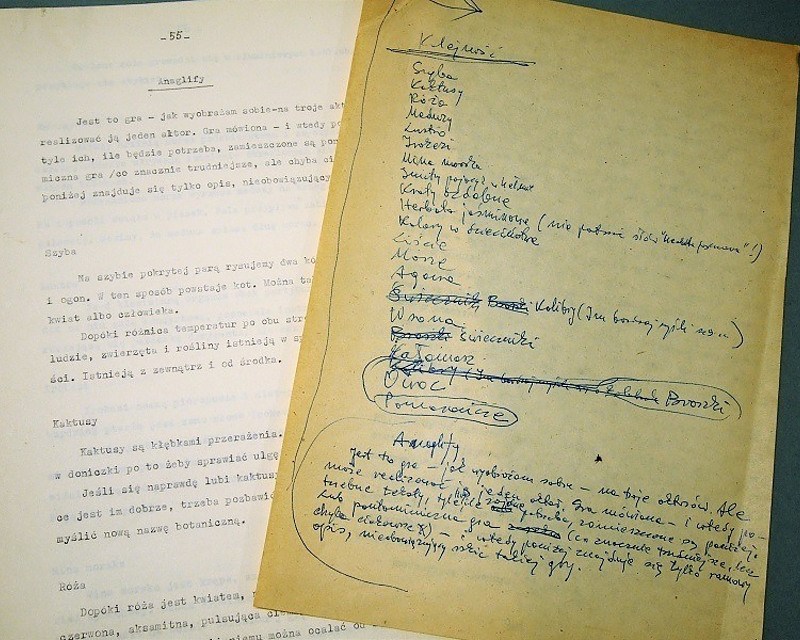 -55-
Anaglify
Jest to gra - jak wyobrażam sobie-na troje akt
realizować ją jeden aktor. Gra mówiona - i wtedy po
tyle ich, ile będzie potrzeba, zamieszczone są pon
miczna gra /co znacznie trudniejsze, ale chyba ci
poniżej znajduje się tylko opis, nieobowiązujący
Szyba
Na szybie pokrytej parą rysujemy dwa kó
i ogon. W ten sposób powstaje kot. Można ta
kwiat albo człowieka.
Dopóki różnica temperatur po obu str
ludzie, zwierzęta i rośliny istnieją w sp
ści. Istnieją z zewnątrz i od środka.
Kaktusy
Kaktusy są kłębkami przerażenia.
w doniczki po to żeby sprawiać ulgę
Jeśli się naprawdę lubi kaktusy
ce jest im dobrze, trzeba pozbawić
myślić nową nazwę botaniczną.
Róża
Dopóki róża jest kwiatem,
czerwona, aksamitna, pulsująca
można ocalać od
Kolejność
Szyba
Kaktusy
Róża
Meduzy
Lustro
Kraty ozdobne
Herbata jaśminowa (nie
Kolory w
Liście
Morze
Agawa
Świeczniki Broszki Kolibry (
Wrona
Broszki Świeczniki
Kałamarz
Kolibry ( Broszki
Owoc
Pomarańcze
Anaglify
Jest to gra - jak wyobrażam sobie - na troje aktorów. Ale
może realizować ją jeden aktor. Gra mówiona - i wtedy po-
trzebne teksty, tyle ich, ile potrzeba, zamieszczone są poniżej.
Lub pantomimiczna gra (co znacznie trudniejsze, lecz
chyba ciekawsze) - i wtedy poniżej znajduje się tylko ramowy
opis, nieobowiązujący szkic takiej gry.